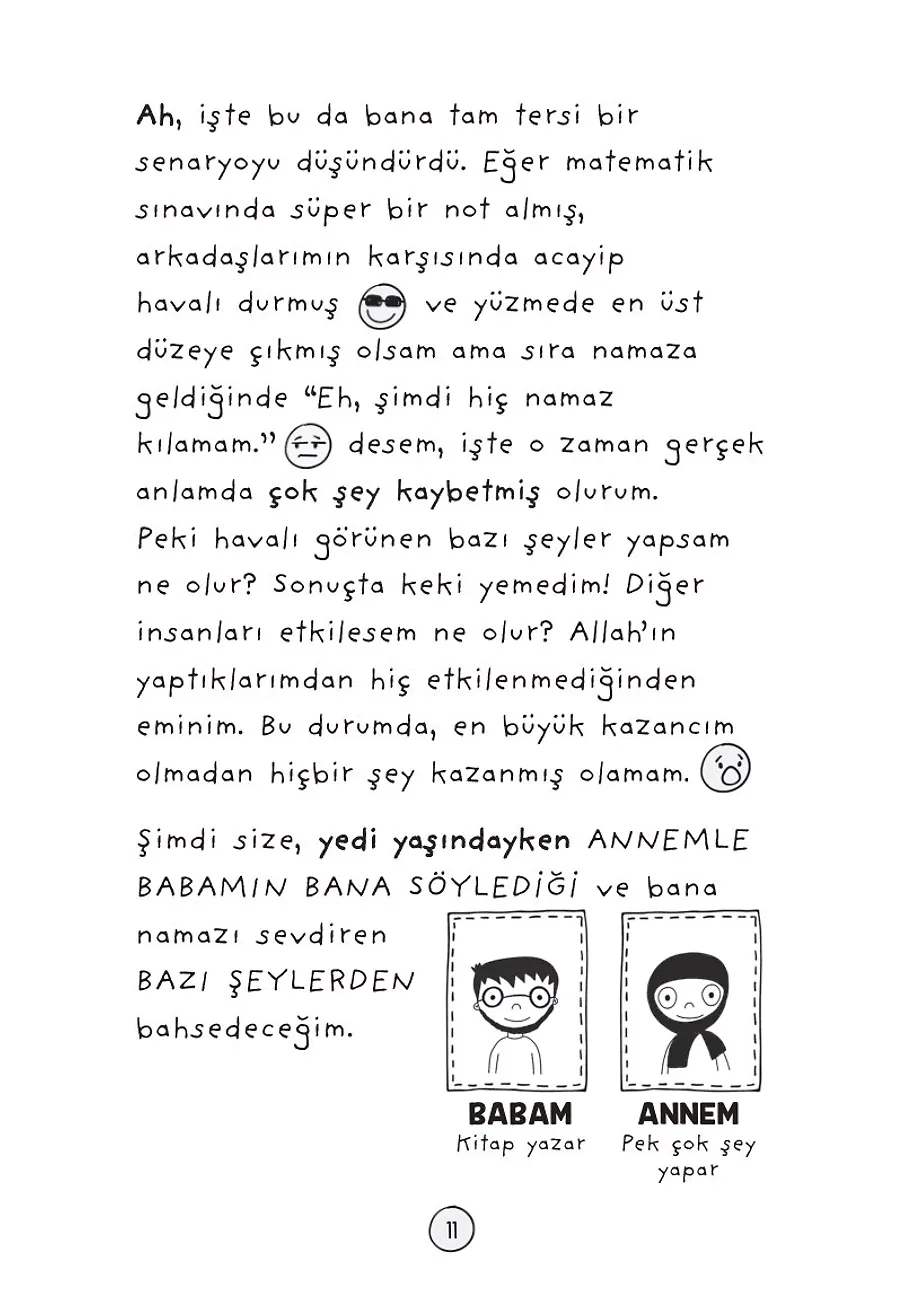 Ah, işte bu da bana tam tersi bir
senaryoyu düşündürdü. Eğer matematik
sınavında süper bir not almış,
arkadaşlarımın karşısında acayip
havalı durmuş ve yüzmede en üst
düzeye çıkmış olsam ama sıra namaza
geldiğinde “Eh, şimdi hiç namaz
kılamam.” desem, işte o zaman gerçek
anlamda çok şey kaybetmiş olurum.
Peki havalı görünen bazı şeyler yapsam
ne olur? Sonuçta keki yemedim! Diğer
insanları etkilesem ne olur? Allah’ın
yaptıklarımdan hiç etkilenmediğinden
eminim. Bu durumda, en büyük kazancım
olmadan hiçbir şey kazanmış olamam.
Şimdi size, yedi yaşındayken ANNEMLE
BABAMIN BANA SÖYLEDİĞİ ve bana
namazı sevdiren
BAZI ŞEYLERDEN
bahsedeceğim.
BABAM
Kitap yazar
ANNEM
Pek çok şey
yapar
11